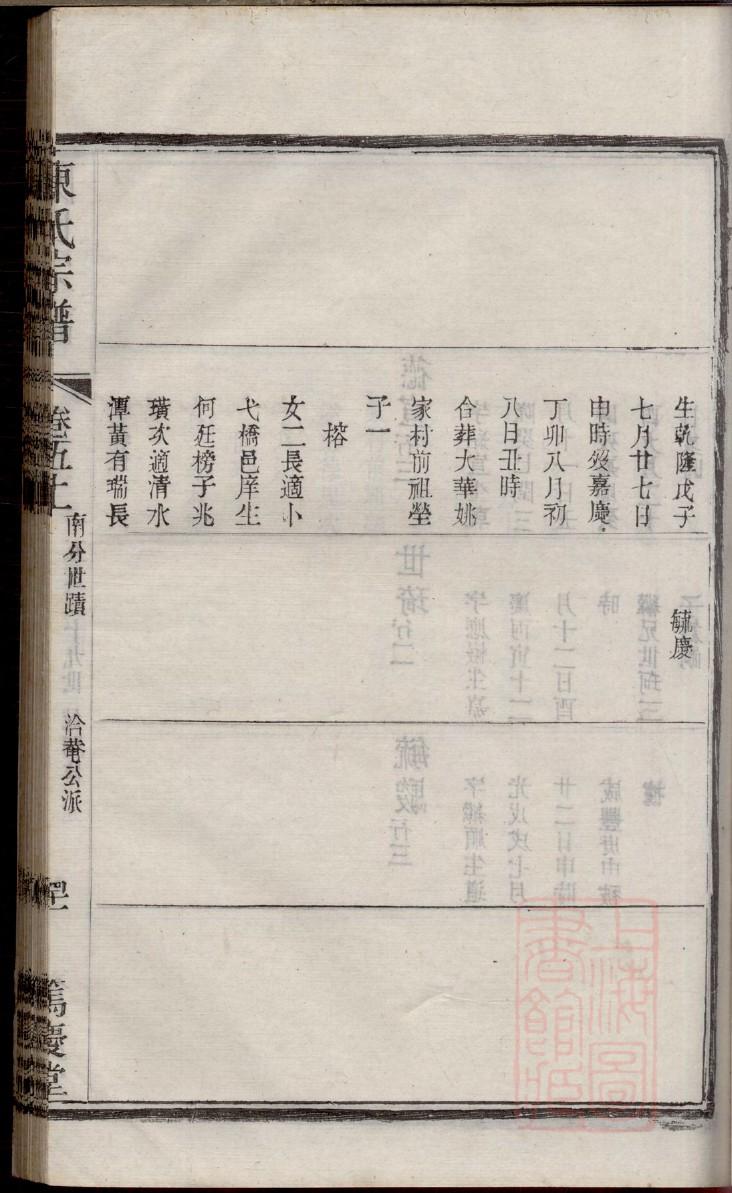 生乾隆戊子
七月廿七日
申時歿嘉慶
丁卯八月初
八日丑時
合葬大華姚
家村前祖塋
子一
榕
女二長適小
弋橋邑庠生
何廷榜子兆
璜次適清水
潭黃有瑞長
毓慶
陳氏宗譜
卷五十
南分世蹟
十九世
洽菴公派
篤慶堂